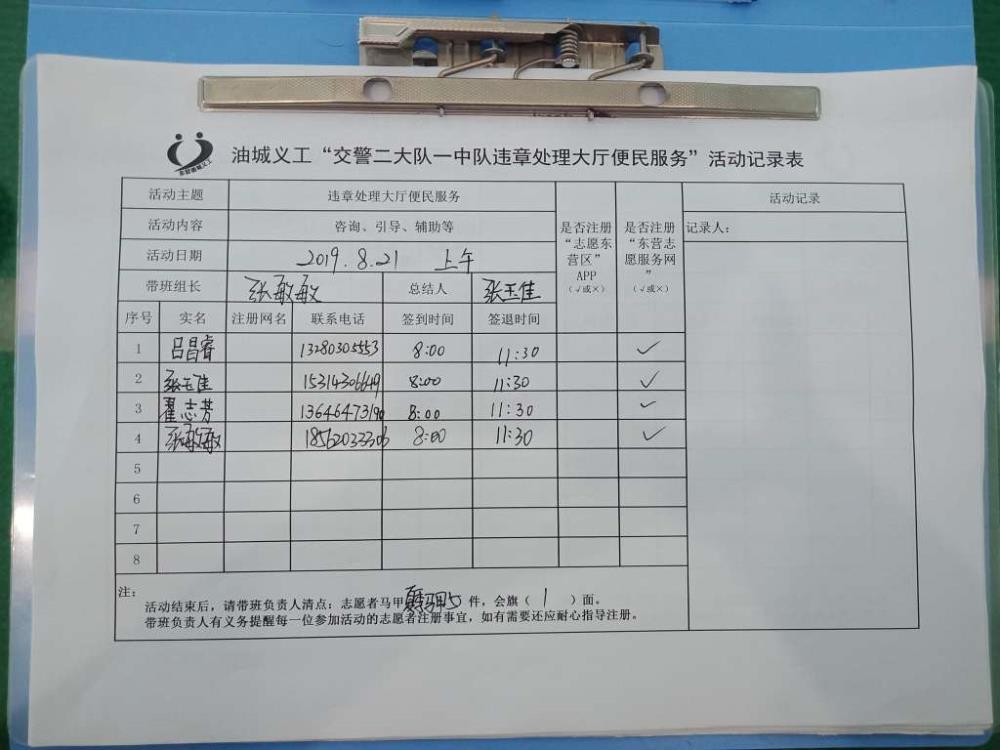 油城义工“交警二大队一中队违章处理大厅便民服务”活动记录表
活动主题 违章处理大厅便民服务 是否注册“志愿东营区”APP（√或×） 是否注册“东营志愿服务网”（√或×） 活动记录
活动内容 咨询、引导、辅助等 记录人：
活动日期 2019.8.21 上午
带班组长 张敏敏 总结人 张玉佳
序号 实名 注册网名 联系电话 签到时间 签退时间
1 吕昌睿 13280305553 8:00 11:30 ✓
2 张玉佳 15314306649 8:00 11:30 ✓
3 翟志芳 13646473190 8:00 11:30 ✓
4 张敏敏 18562033306 8:00 11:30 ✓
5
6
7
8
注：
活动结束后，请带班负责人清点：志愿者马甲 5 件，会旗（ 1 ）面。
带班负责人有义务提醒每一位参加活动的志愿者注册事宜，如有需要还应耐心指导注册。